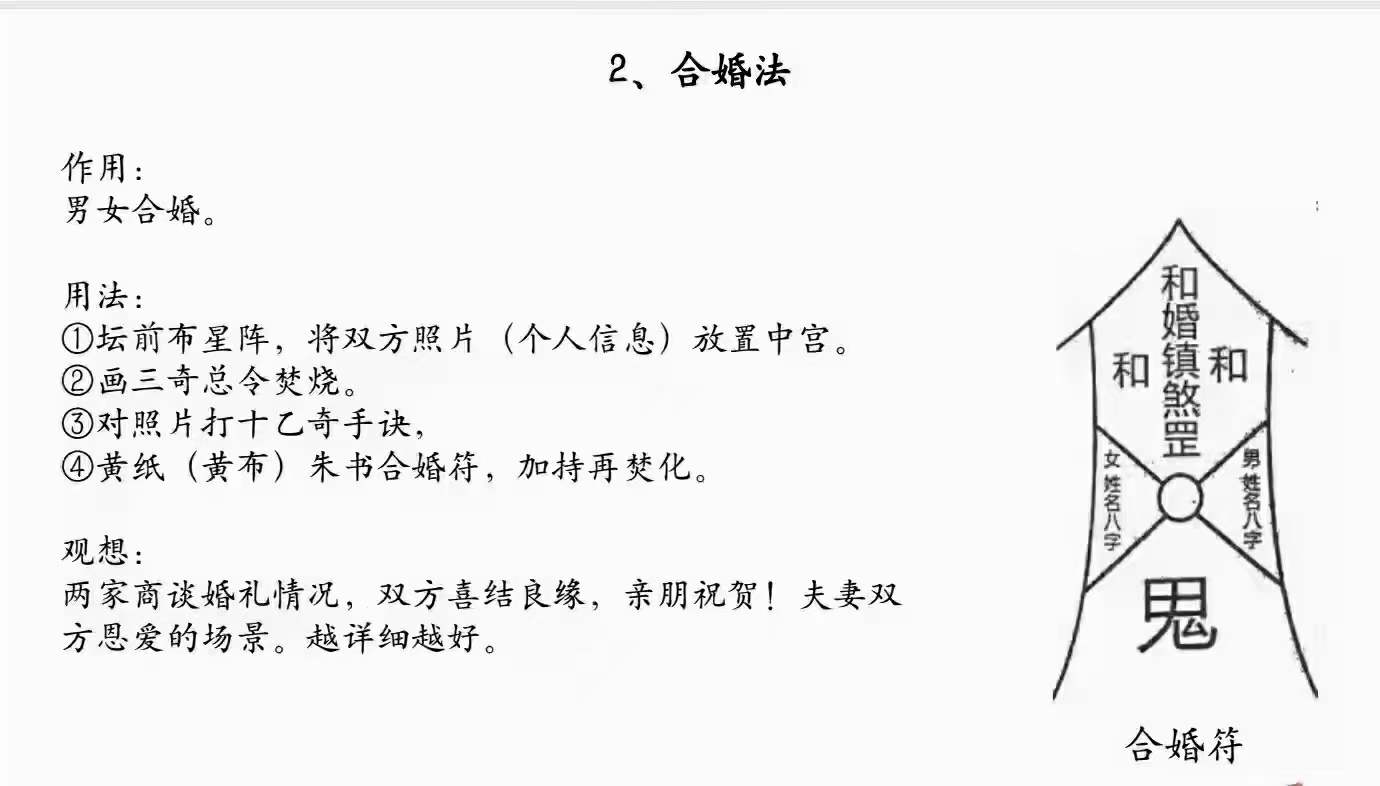 2、合婚法
作用：
男女合婚。
用法：
①坛前布星阵，将双方照片（个人信息）放置中宫。
②画三奇总令焚烧。
③对照片打十乙奇手诀，
④黄纸（黄布）朱书合婚符，加持再焚化。
观想：
两家商谈婚礼情况，双方喜结良缘，亲朋祝贺！夫妻双
方恩爱的场景。越详细越好。
和婚镇煞罡
和
和
女 姓名八字
男 姓名八字
合婚符